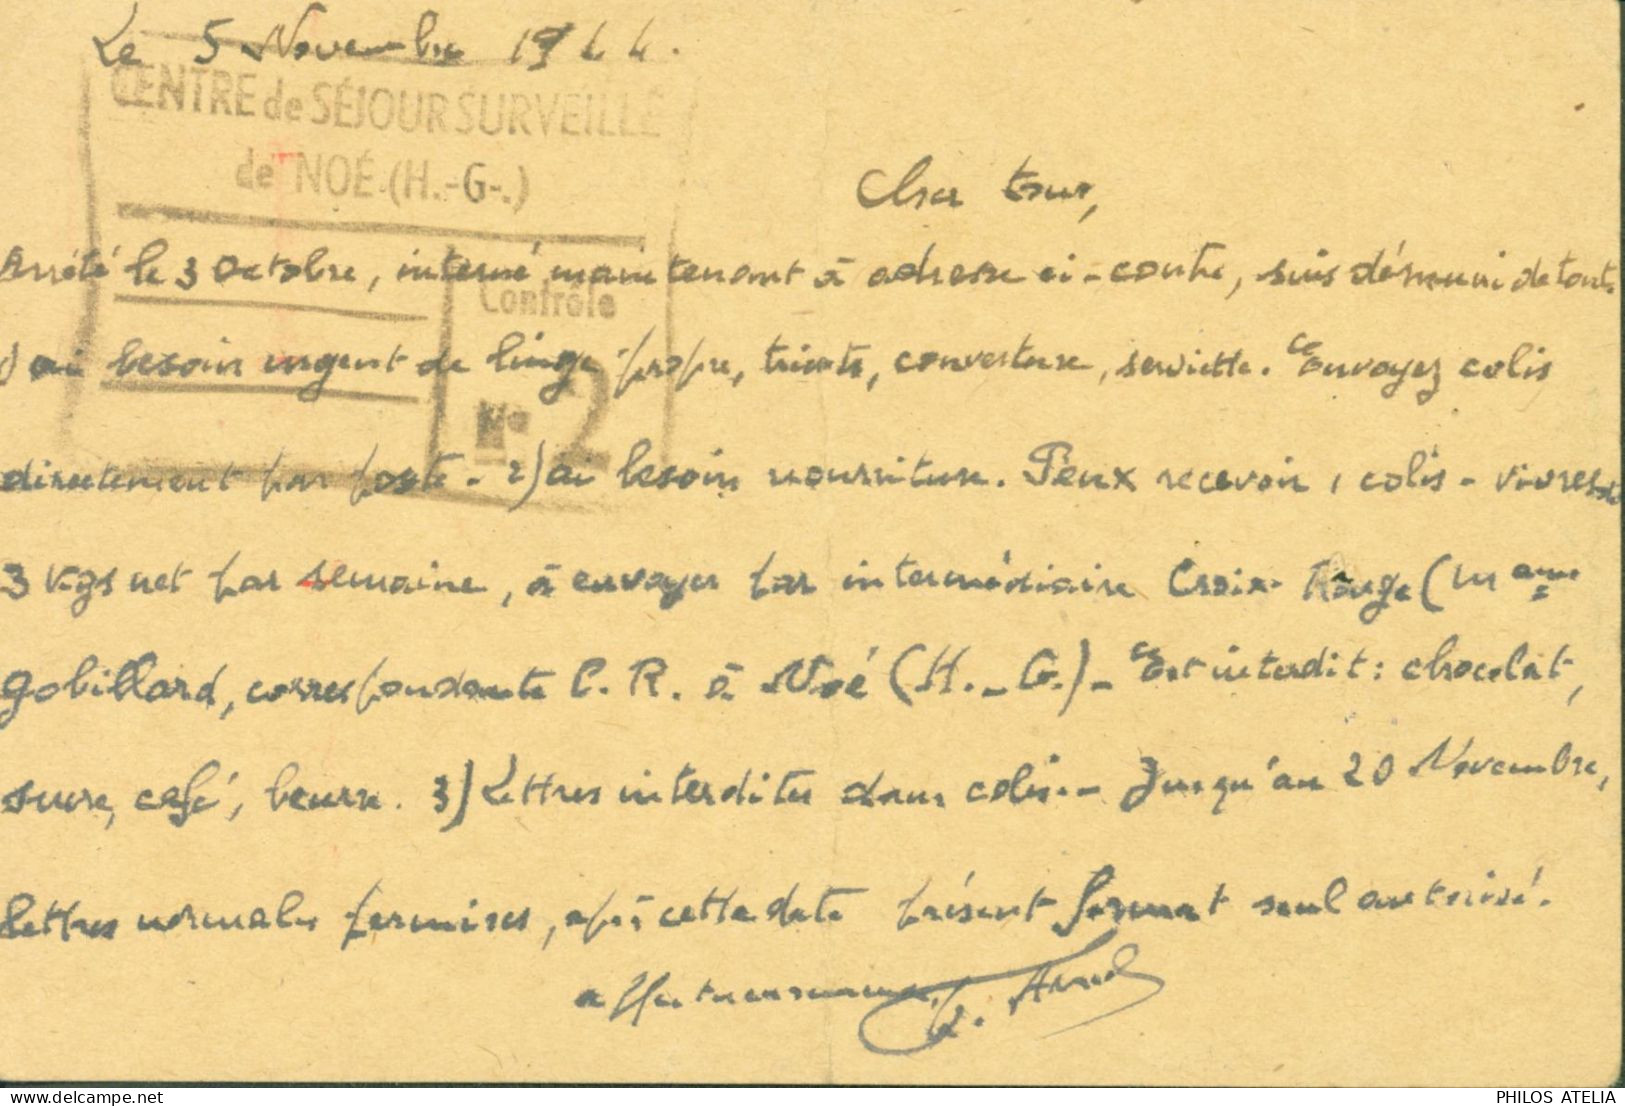 Le 5 Novembre 1944.
CENTRE de SÉJOUR SURVEILLÉ
de NOÉ (H.-G-.)
Cher tous,
Arrété le 3 Octobre, interné maintenant à adresse ci-contre, suis démuni de tout.
Contrôle
1) ai besoin urgent de linge propre, tricots, couverture, serviette. envoyez colis
No 2
directement par poste. 2) ai besoin nourriture. Peux recevoir 1 colis-vivres de
3 kgs net par semaine, à envoyer par intermédiaire Croix-Rouge (Mame
Gobillard, correspondante C. R. à Noé (H.-G.)- est interdit: chocolat,
sucre, café, beurre. 3) Lettres interdites dans colis.- Jusqu'au 20 Novembre,
lettres normales permises, après cette date présent format seul autorisé.
affectueusement
PHILOS ATELIA